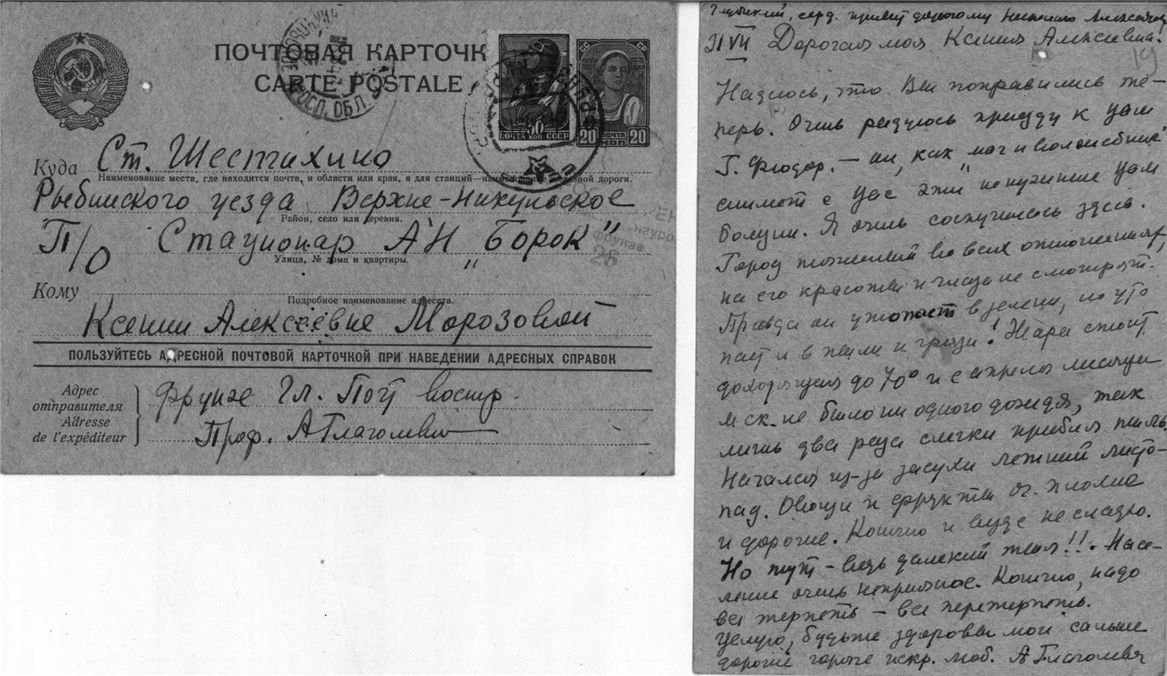 ПОЧТОВАЯ КАРТОЧК
CARTE POSTALE
50
ПОЧТА СССР
20 ПОЧТА 20
Куда Ст. Шестихино
Наименование места, где находится почта, и области или края, а для станций
Рыбинского уезда Верхне-Никульское
Район, село или деревня.
П/о Стационар АН „Борок"
Улица, № дома и квартиры.
Кому
Подробное наименование адресата.
Ксении Алексеевне Морозовой
ПОЛЬЗУЙТЕСЬ АДРЕСНОЙ ПОЧТОВОЙ КАРТОЧКОЙ ПРИ НАВЕДЕНИИ АДРЕСНЫХ СПРАВОК
Адрес
отправителя
Adresse
de l'expéditeur
Фрунзе Гл. Почт востр.
Проф. А Глаголева
19
серд. привет дорогому
VII Дорогая моя Ксения Алексеевна!
Надеюсь, что Вы поправились те-
перь. Очень радуюсь приезду к Вам
Г. Федор. — он, как маг и волшебник
снимет с Вас эти Вам
болезни. Я очень соскучилась здесь.
Город во всех отношениях,
на его красоты и глаза не смотрят.
Правда он утопает в зелени, но уто
пает и в пыли и грязи! Жара стоит,
доходящая до 70° и с апреля месяца
не было ни одного дождя, так
лишь два раза слегка прибил пыль,
Начался из-за засухи летний листо-
пад. Овощи и фрукты оч. плохие
и дорогие. Конечно и везде не сладко.
Но тут — ведь далекий тыл!!. Насе-
ление очень неприязное. Конечно, надо
все терпеть — все перетерпеть.
Целую, будьте здоровы мои самые
дорогие искр. люб. А Глаголева